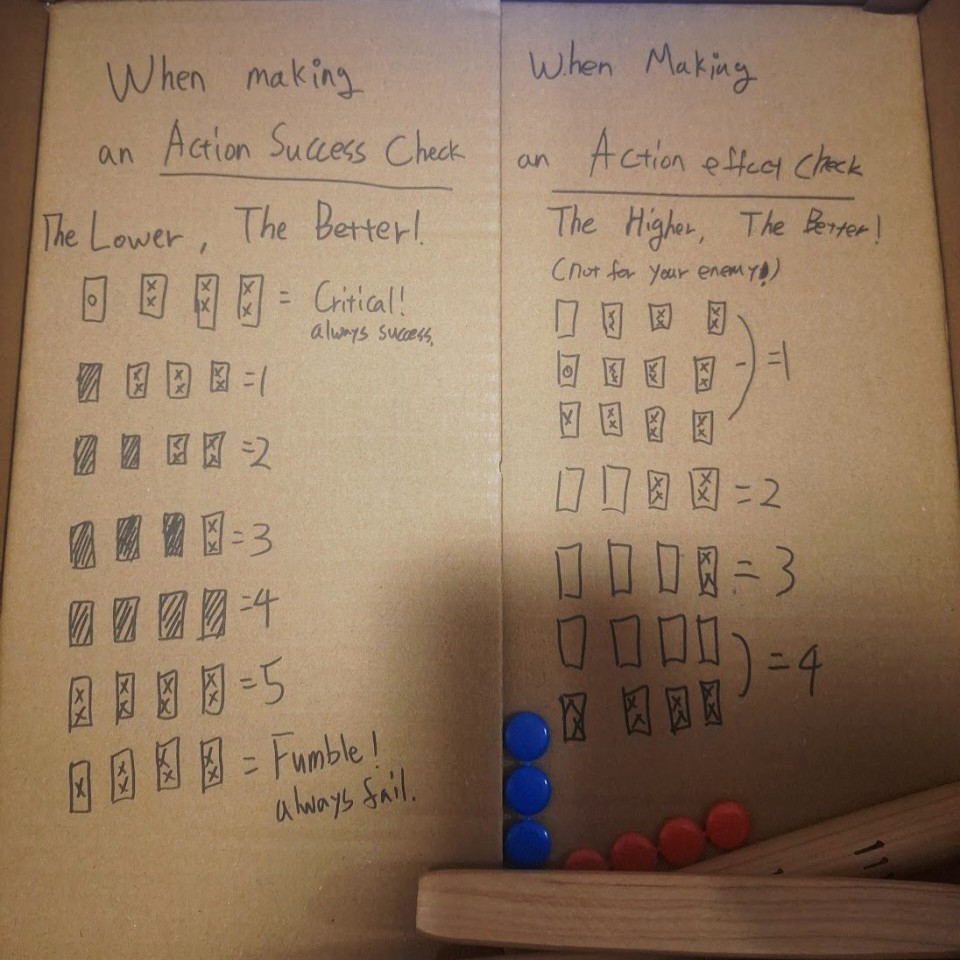 When making
an Action Success Check
The Lower, The Better!
= Critical!
always success.
=1
=2
=3
=4
=5
= Fumble!
always fail.
When Making
an Action effect Check
The Higher, The Better!
(not for your enemy!)
=1
=2
=3
=4